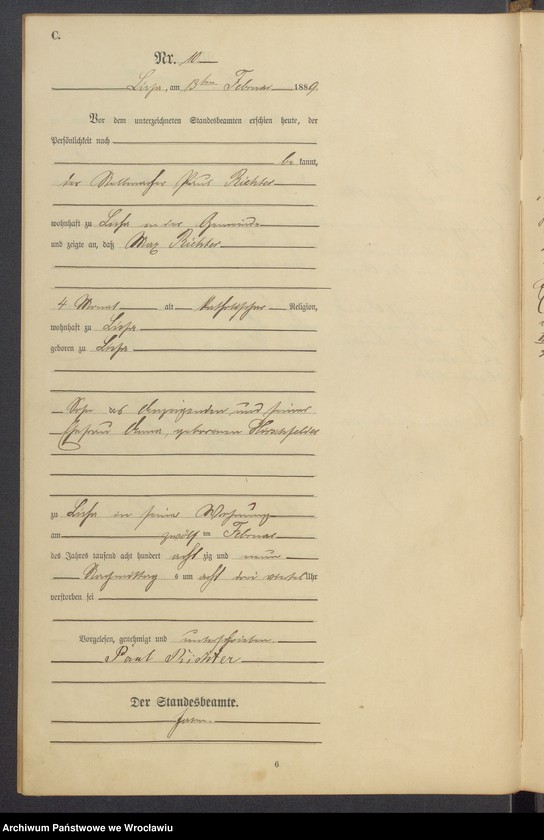 C.
Nr. 10
Lissa, am 13ten Februar 1889.
Vor dem unterzeichneten Standesbeamten erschien heute, der
Persönlichkeit nach
be kannt,
der Stellmacher Paul Richter
wohnhaft zu Lissa in der Gemeinde
und zeigte an, daß Max Richter
4 Monat alt katholischer Religion,
wohnhaft zu Lissa
geboren zu Lissa
Sohn des Anzeigenden und seiner
Ehefrau Anna, geborenen Hirschfelder
zu Lissa in seiner Wohnung
am zwölf ten Februar
des Jahres tausend acht hundert acht zig und neun
Nachmittag s um acht drei viertel Uhr
verstorben sei
Vorgelesen, genehmigt und unterschrieben
Paul Richter
Der Standesbeamte.
6
Archiwum Państwowe we Wrocławiu